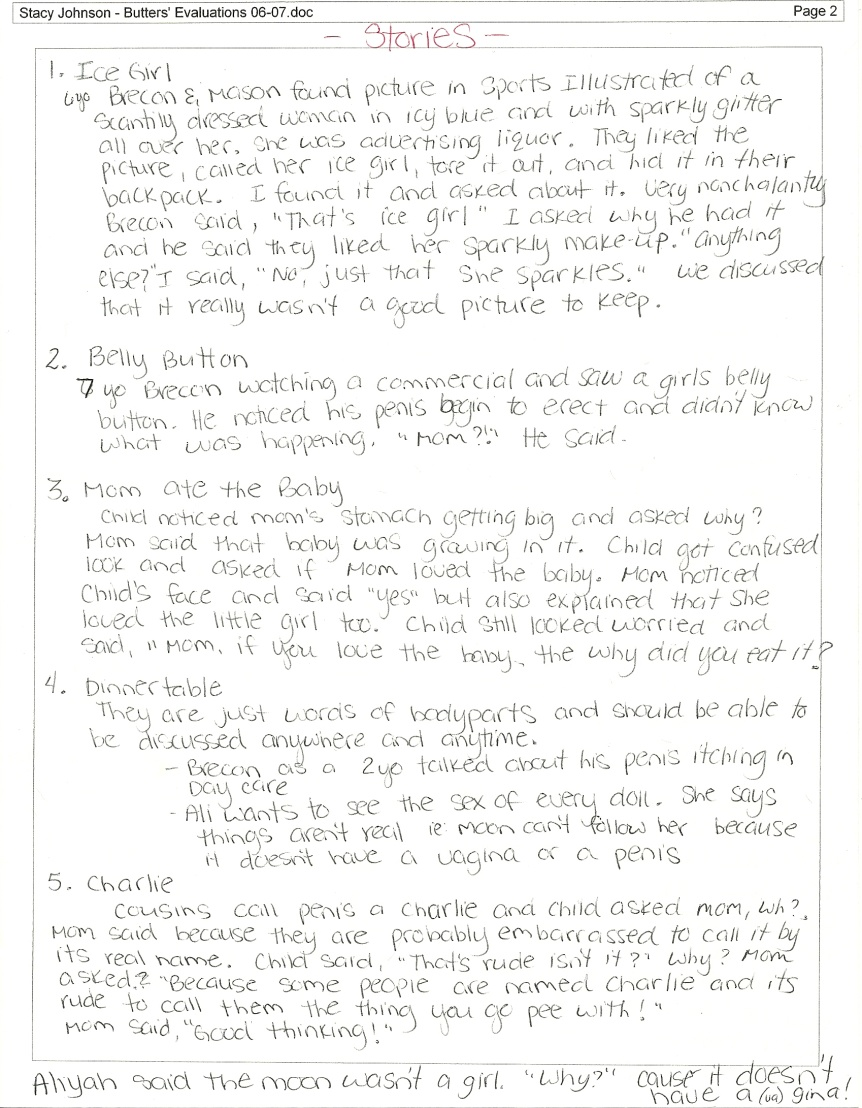 Stacy Johnson - Butters' Evaluations 06-07.doc Page 2
- Stories -
1. Ice Girl
6yo Brecon & Mason found picture in Sports Illustrated of a
scantily dressed woman in icy blue and with sparkly glitter
all over her. She was advertising liquor. They liked the
picture, called her ice girl, tore it out, and hid it in their
backpack. I found it and asked about it. Very nonchalantly
Brecon said, "That's ice girl" I asked why he had it
and he said they liked her sparkly make-up. "Anything
else?" I said, "No, just that she sparkles." We discussed
that it really wasn't a good picture to keep.
2. Belly Button
7 yo Brecon watching a commercial and saw a girls belly
button. He noticed his penis begin to erect and didn't know
what was happening. "Mom?!" He said.
3. Mom ate the Baby
Child noticed mom's stomach getting big and asked why?
Mom said that baby was growing in it. Child got confused
look and asked if Mom loved the baby. Mom noticed
Child's face and said "yes" but also explained that she
loved the little girl too. Child still looked worried and
said, "Mom, if you love the baby, the why did you eat it?
4. Dinnertable
They are just words of bodyparts and should be able to
be discussed anywhere and anytime.
- Brecon as a 2yo talked about his penis itching in
Day care
- Ali wants to see the sex of every doll. She says
things aren't real ie: moon can't follow her because
it doesn't have a vagina or a penis
5. Charlie
Cousins call penis a Charlie and Child asked mom, wh?,
Mom said because they are probably embarrassed to call it by
its real name. Child said, "That's rude isn't it?" Why? Mom
asked? "Because some people are named Charlie and its
rude to call them the thing you go pee with!"
Mom said, "Good thinking!"
Aliyah said the moon wasn't a girl. "Why?" cause it doesn't
have a (va) gina!